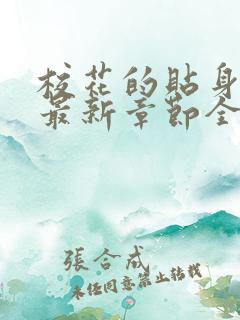 校花的貼身
最新章節全
張合成
未经同意禁止转载